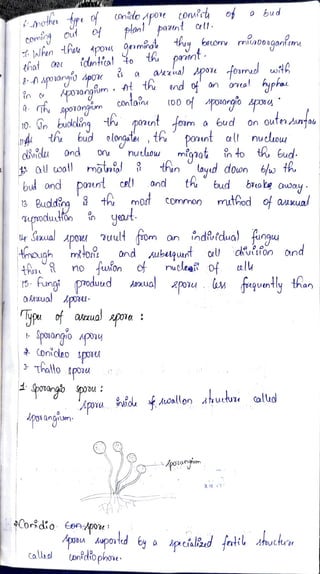 6. Another type of conidio spore consist of a bud
coming out of plant parent cell.
7. When these spores germinate they become microorganism
that are identical to the parent.
8. A sporangio spore is a asexual spore formed with
in a sporangium. At the end of an areal hyphae
9. The sporangium contains 100 of sporangio spores.
10. In budding the parent form a bud on outer surface
the bud elongates, the parent cell nucleus
divides and one nucleus migrate into the bud.
cell wall material is then layed down b/w the
bud and parent cell and the bud breaks away.
13. Budding is the most common method of asexual
reproduction in yeast.
14. Sexual spores result from an individual fungus
through mitosis and subsequent cell division and
there is no fusion of nucleai of cells
15. Fungi produced sexual spores less frequently than
asexual spores.
Types of asexual spores :
1. Sporangio spores
2. Conideo spores
3. Thallo spores
1. Sporangio spores :
Spores inside of swollen structure called
sporangium.
Sporangium
Conidio spores :
Spores suported by a specialized fertile structure
called conidiophore.